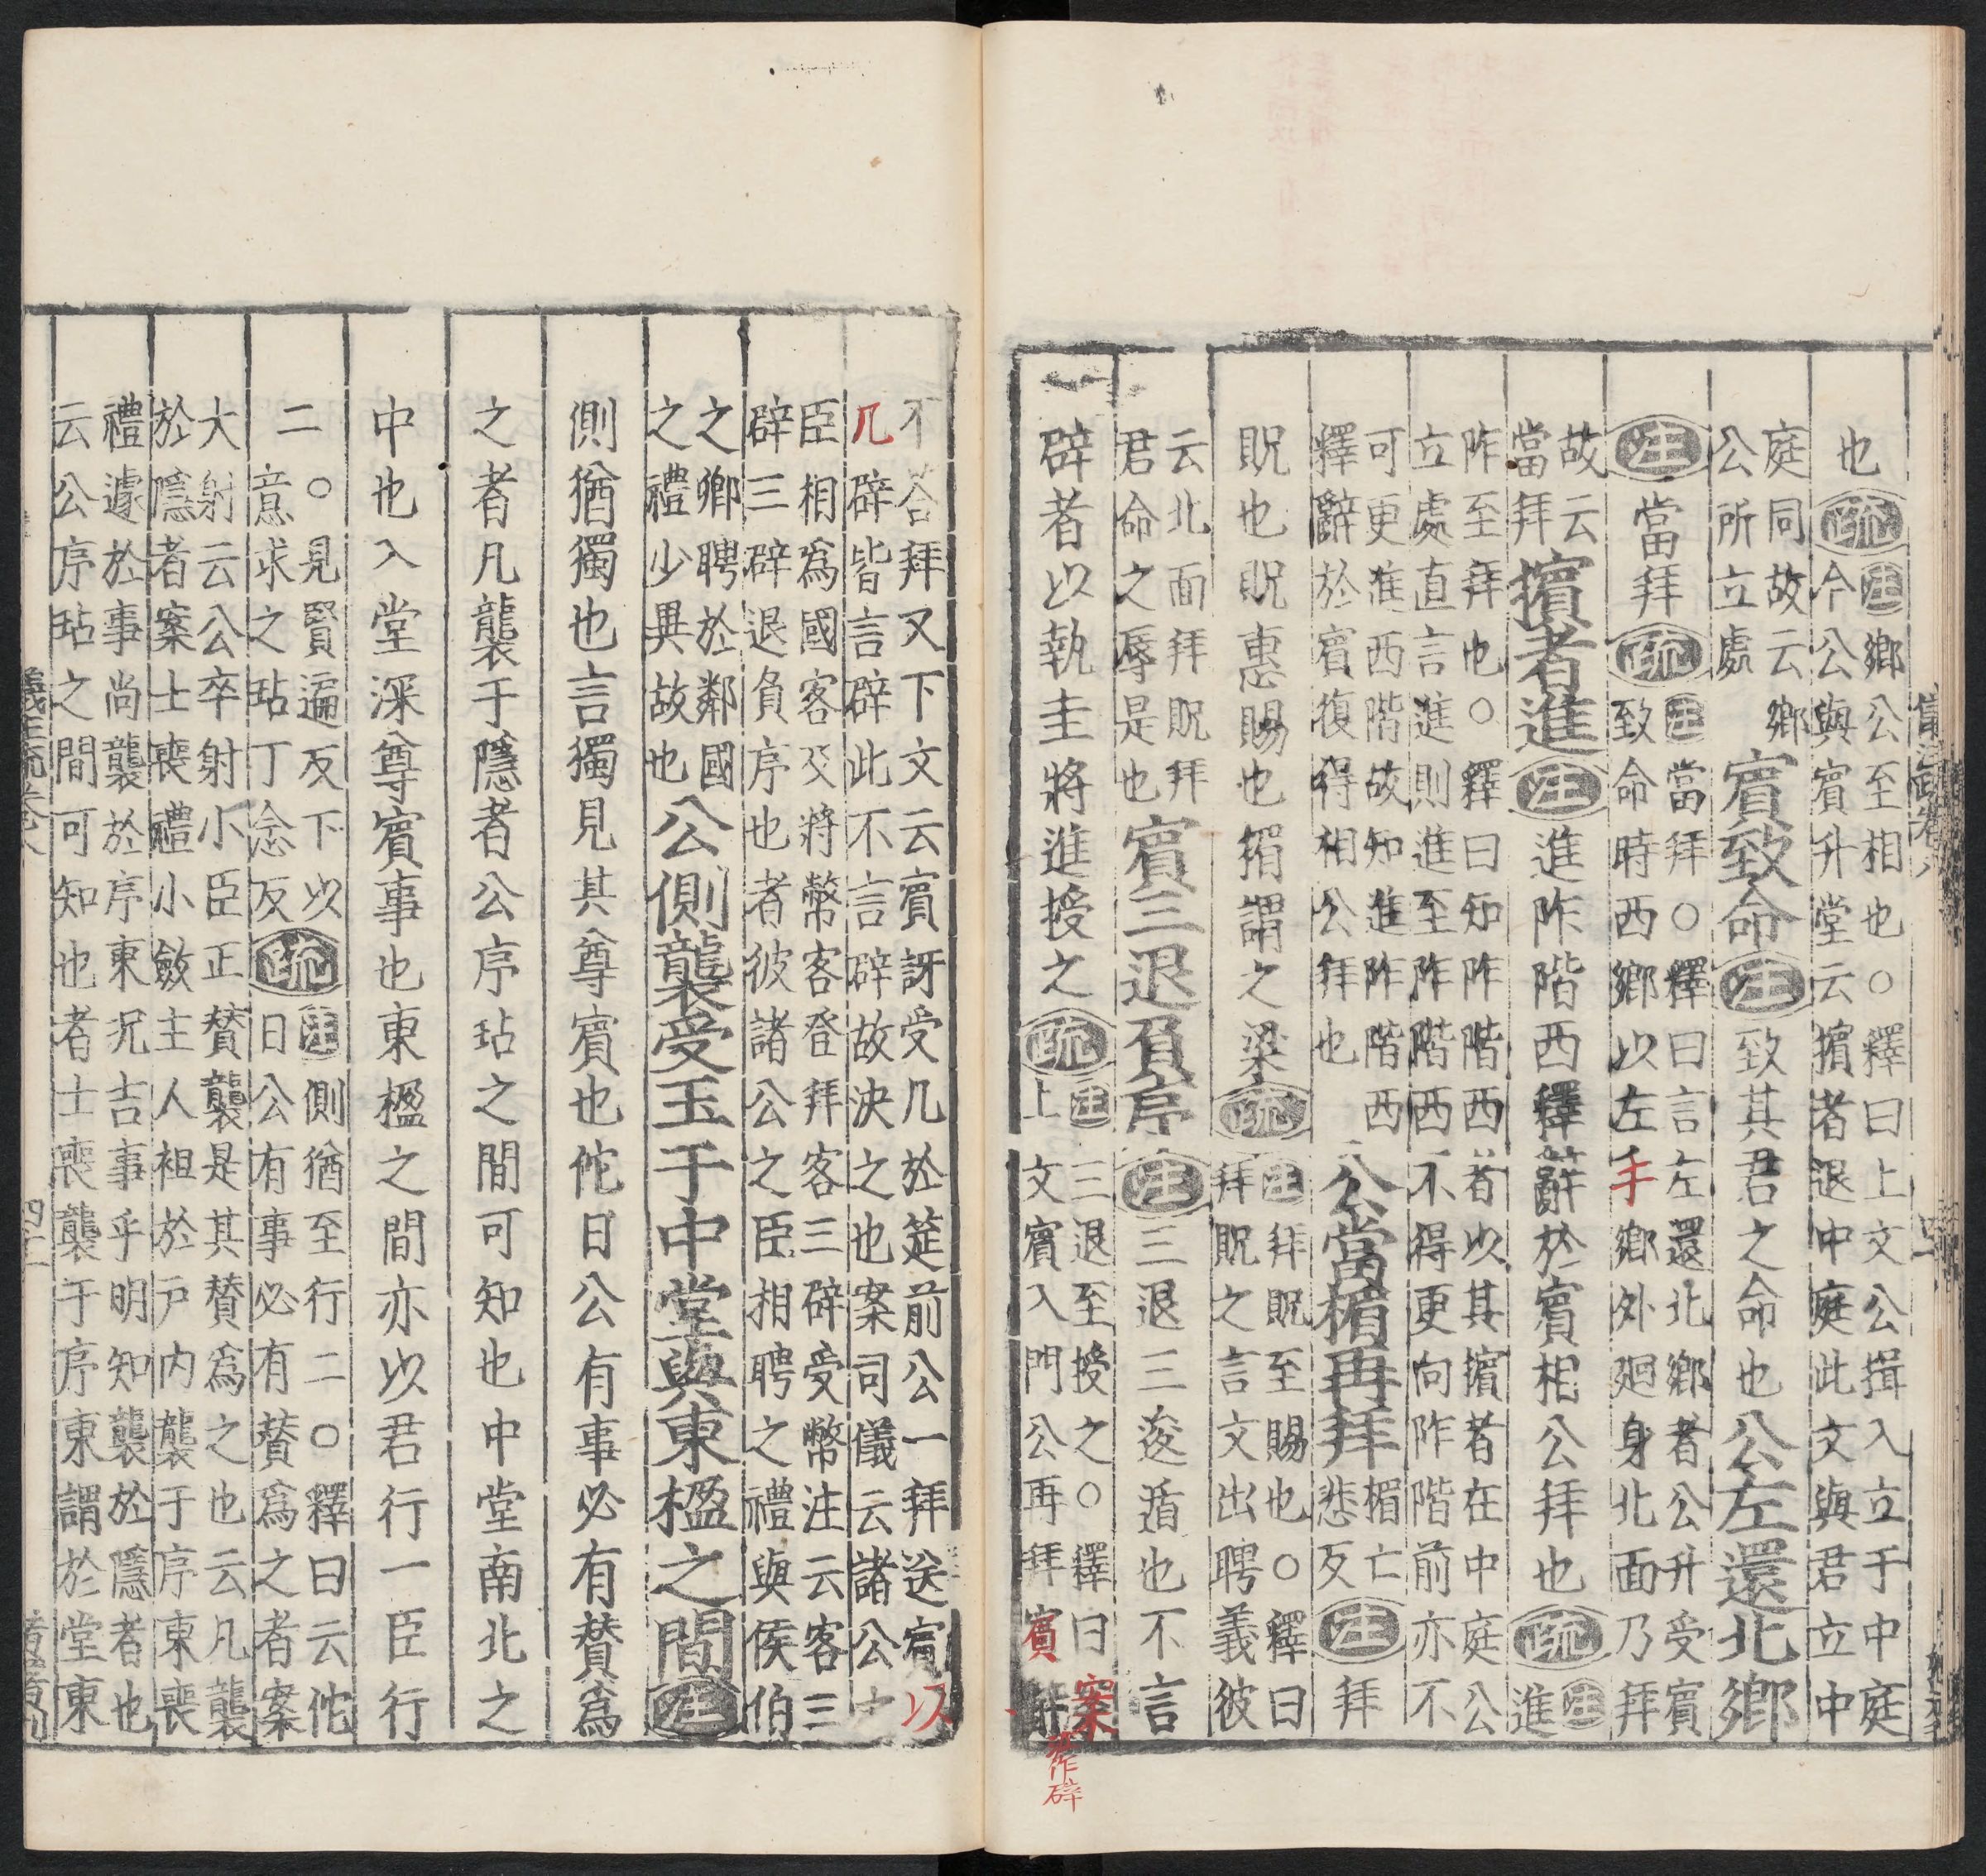 也疏注鄉公至相也○釋曰上文公揖入立于中庭
今公與賓升堂云擯者退中庭此文與君立中
庭同故云鄉
公所立處
賓致命注致其君之命也公左還北鄉
注當拜疏注當拜○釋曰言左還北鄉者公升受賓
致命時西鄉以左手鄉外廻身北面乃拜
故云
當拜
擯者進注進阼階西釋辭於賓相公拜也疏注
進
阼至拜也○釋曰知阼階西者以其擯者在中庭公
立處直言進則進至阼階西不得更向阼階前亦不
可更進西階故知進阼階西
釋辭於賓復得相公拜也
公當楣再拜楣亡
悲反
注拜
貺也貺惠賜也楣謂之梁疏注拜貺至賜也○釋曰
拜貺之言文出聘義彼
云北面拜貺拜
君命之辱是也
賓三退負序注三退三逡遁也不言
辟者以執圭將進授之疏注三退至授之○釋曰案
上文賓入門公再拜賓辟
作辟
不荅拜又下文云賓訝受几於筵前公一拜送賓以
几辟皆言辟此不言辟故決之也案司儀云諸公之
臣相爲國客及將幣客登拜客三辟受幣注云客三
辟三辟退負序也者彼諸公之臣相聘之禮與侯伯
之鄉聘於鄰國
之禮少異故也
公側襲受玉于中堂與東楹之間注
側猶獨也言獨見其尊賓也佗日公有事必有贊爲
之者凡襲于隱者公序坫之間可知也中堂南北之
中也入堂深尊賓事也東楹之間亦以君行一臣行
二○見賢遍反下以
意求之坫丁念反
疏注側猶至行二○釋曰云佗
日公有事必有贊爲之者案
大射云公卒射小臣正贊襲是其贊爲之也云凡襲
於隱者案士喪禮小斂主人袒於戶内襲于序東喪
禮遽於事尚襲於序東况吉事乎明知襲於隱者也
云公序坫之間可知也者士喪襲于序東謂於堂東